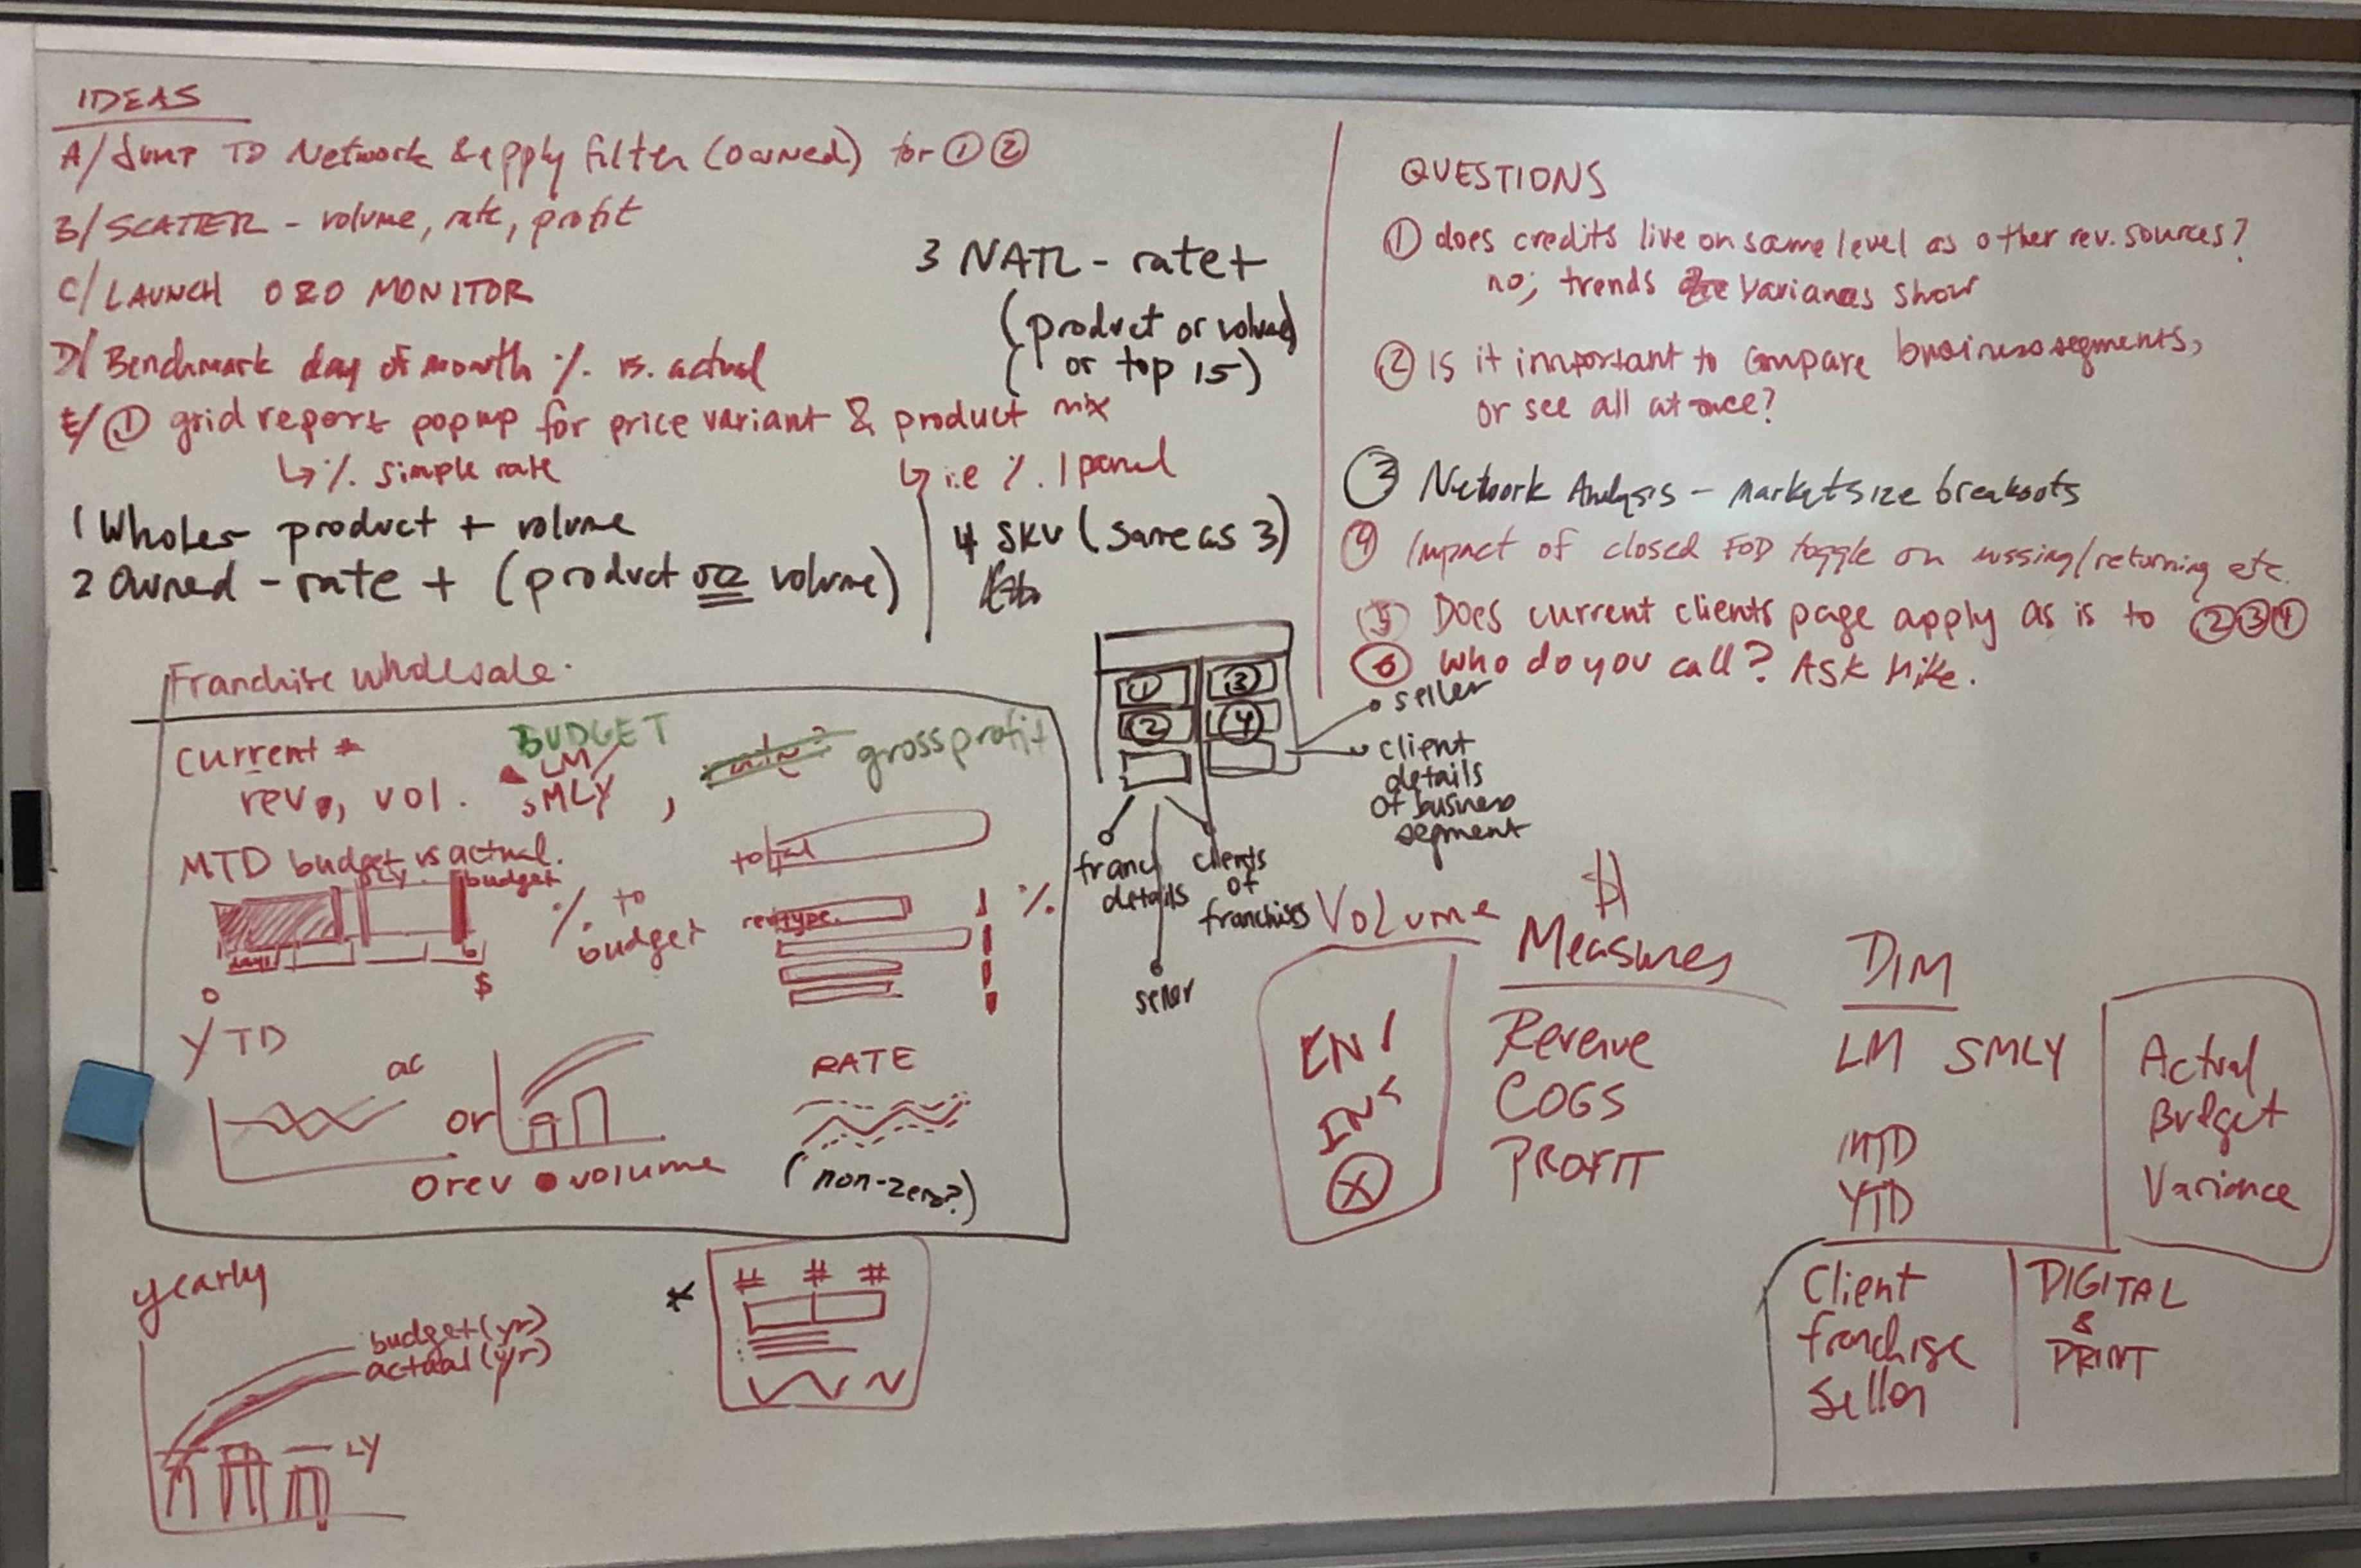 IDEAS
A/ JUMP TO Network & apply filter (owned) for ① ②
B/ SCATTER - volume, rate, profit
C/ LAUNCH 020 MONITOR
D/ Benchmark day of month % vs. actual
E/ ① grid report popup for price variant & product mix
↳ % simple rate
↳ i.e % 1 panel
1 Wholes- product + volume
2 Owned - rate + (product or volume)
3 NATL - rate +
(product or volume)
(or top 15)
4 SKU (same as 3)
QUESTIONS
① does credits live on same level as other rev. sources?
no; trends variances show
② Is it important to compare business segments,
or see all at once?
③ Network Analysis - market size breakouts
④ Impact of closed FOD toggle on missing/returning etc.
⑤ Does current clients page apply as is to ②③④
⑥ Who do you call? Ask Mike.
① ③
② ④
seller
client
details
of business
segment
franc
details
clients
of
franchises
seller
Franchise wholesale.
Current #
rev, vol.
BUDGET
LM/
SMLY
,
gross profit
MTD budget vs actual.
budget
days
0
$
% to
budget
total
rev type.
%
YTD
ac
or
O rev ● volume
RATE
(non-zero?)
yearly
budget (yr)
actual (yr)
LY
*
# # #
Volume
INS
X
$
Measures
Revenue
COGS
PROFIT
DIM
LM SMLY
MTD
YTD
Actual
Budget
Variance
Client
franchise
Seller
DIGITAL
&
PRINT